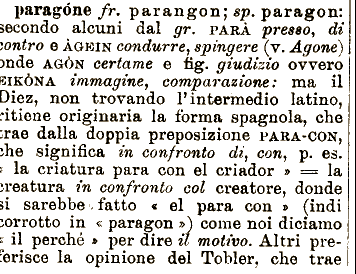 paragóne fr. parangon; sp. paragon:
secondo alcuni dal gr. PARÀ presso, di
contro e ÀGEIN condurre, spingere (v. Agone)
onde AGÒN certame e fig. giudizio ovvero
EIKÒNA immagine, comparazione: ma il
Diez, non trovando l'intermedio latino,
ritiene originaria la forma spagnola, che
trae dalla doppia preposizione PARA-CON,
che significa in confronto di, con, p. es.
« la criatura para con el criador » = la
creatura in confronto col creatore, donde
si sarebbe fatto « el para con » (indi
corrotto in « paragon ») come noi diciamo
« il perché » per dire il motivo. Altri pre-
ferisce la opinione del Tobler, che trae